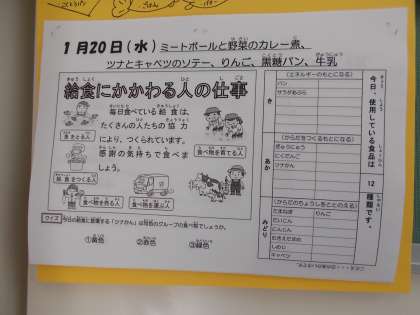 ごはん
1月20日(水) ミートボールと野菜のカレー煮、
ツナとキャベツのソテー、りんご、黒糖パン、牛乳
給食にかかわる人の仕事
毎日食べている給食は、
たくさんの人たちの協力
により、つくられています。
感謝の気持ちで食べま
しょう。
魚をとる人
食べ物を育てる人
給食をつくる人
食べ物を売る人
食べ物を運ぶ人
クイズ 今日の給食に登場する「ツナかん」は何色のグループの食べ物でしょうか。
①黄色 ②赤色 ③緑色
今日、使用している食品は 12 種類です。
き
(エネルギーのもとになる)
パン
サラダあぶら
あか
(からだをつくるもとになる)
ぎゅうにゅう
にくだんご
ツナかん
みどり
(からだのちょうしをととのえる)
たまねぎ りんご
だいこん
にんじん
むきえだまめ
しめじ
キャベツ